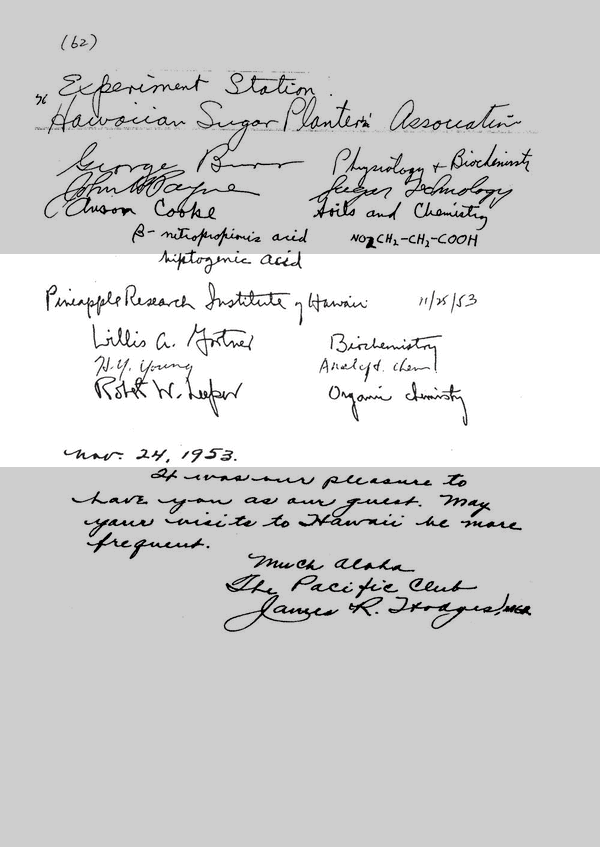 (62)
Experiment Station
Hawaiian Sugar Planters' Association
George Burr Physiology + Biochemistry
John H. Payne Sugar Technology
C. Anson Cooke Soils and Chemistry
β-nitropropionic acid NO2CH2-CH2-COOH
hiptogenic acid
Pineapple Research Institute of Hawaii 11/25/53
Willis A. Gortner Biochemistry
H.Y. Young Analyt. Chem.
Robert W. Leeper Organic chemistry
Nov. 24, 1953.
It was our pleasure to
have you as our guest. May
your visits to Hawaii be more
frequent.
Much Aloha
The Pacific Club
James R. Hodges, mgr